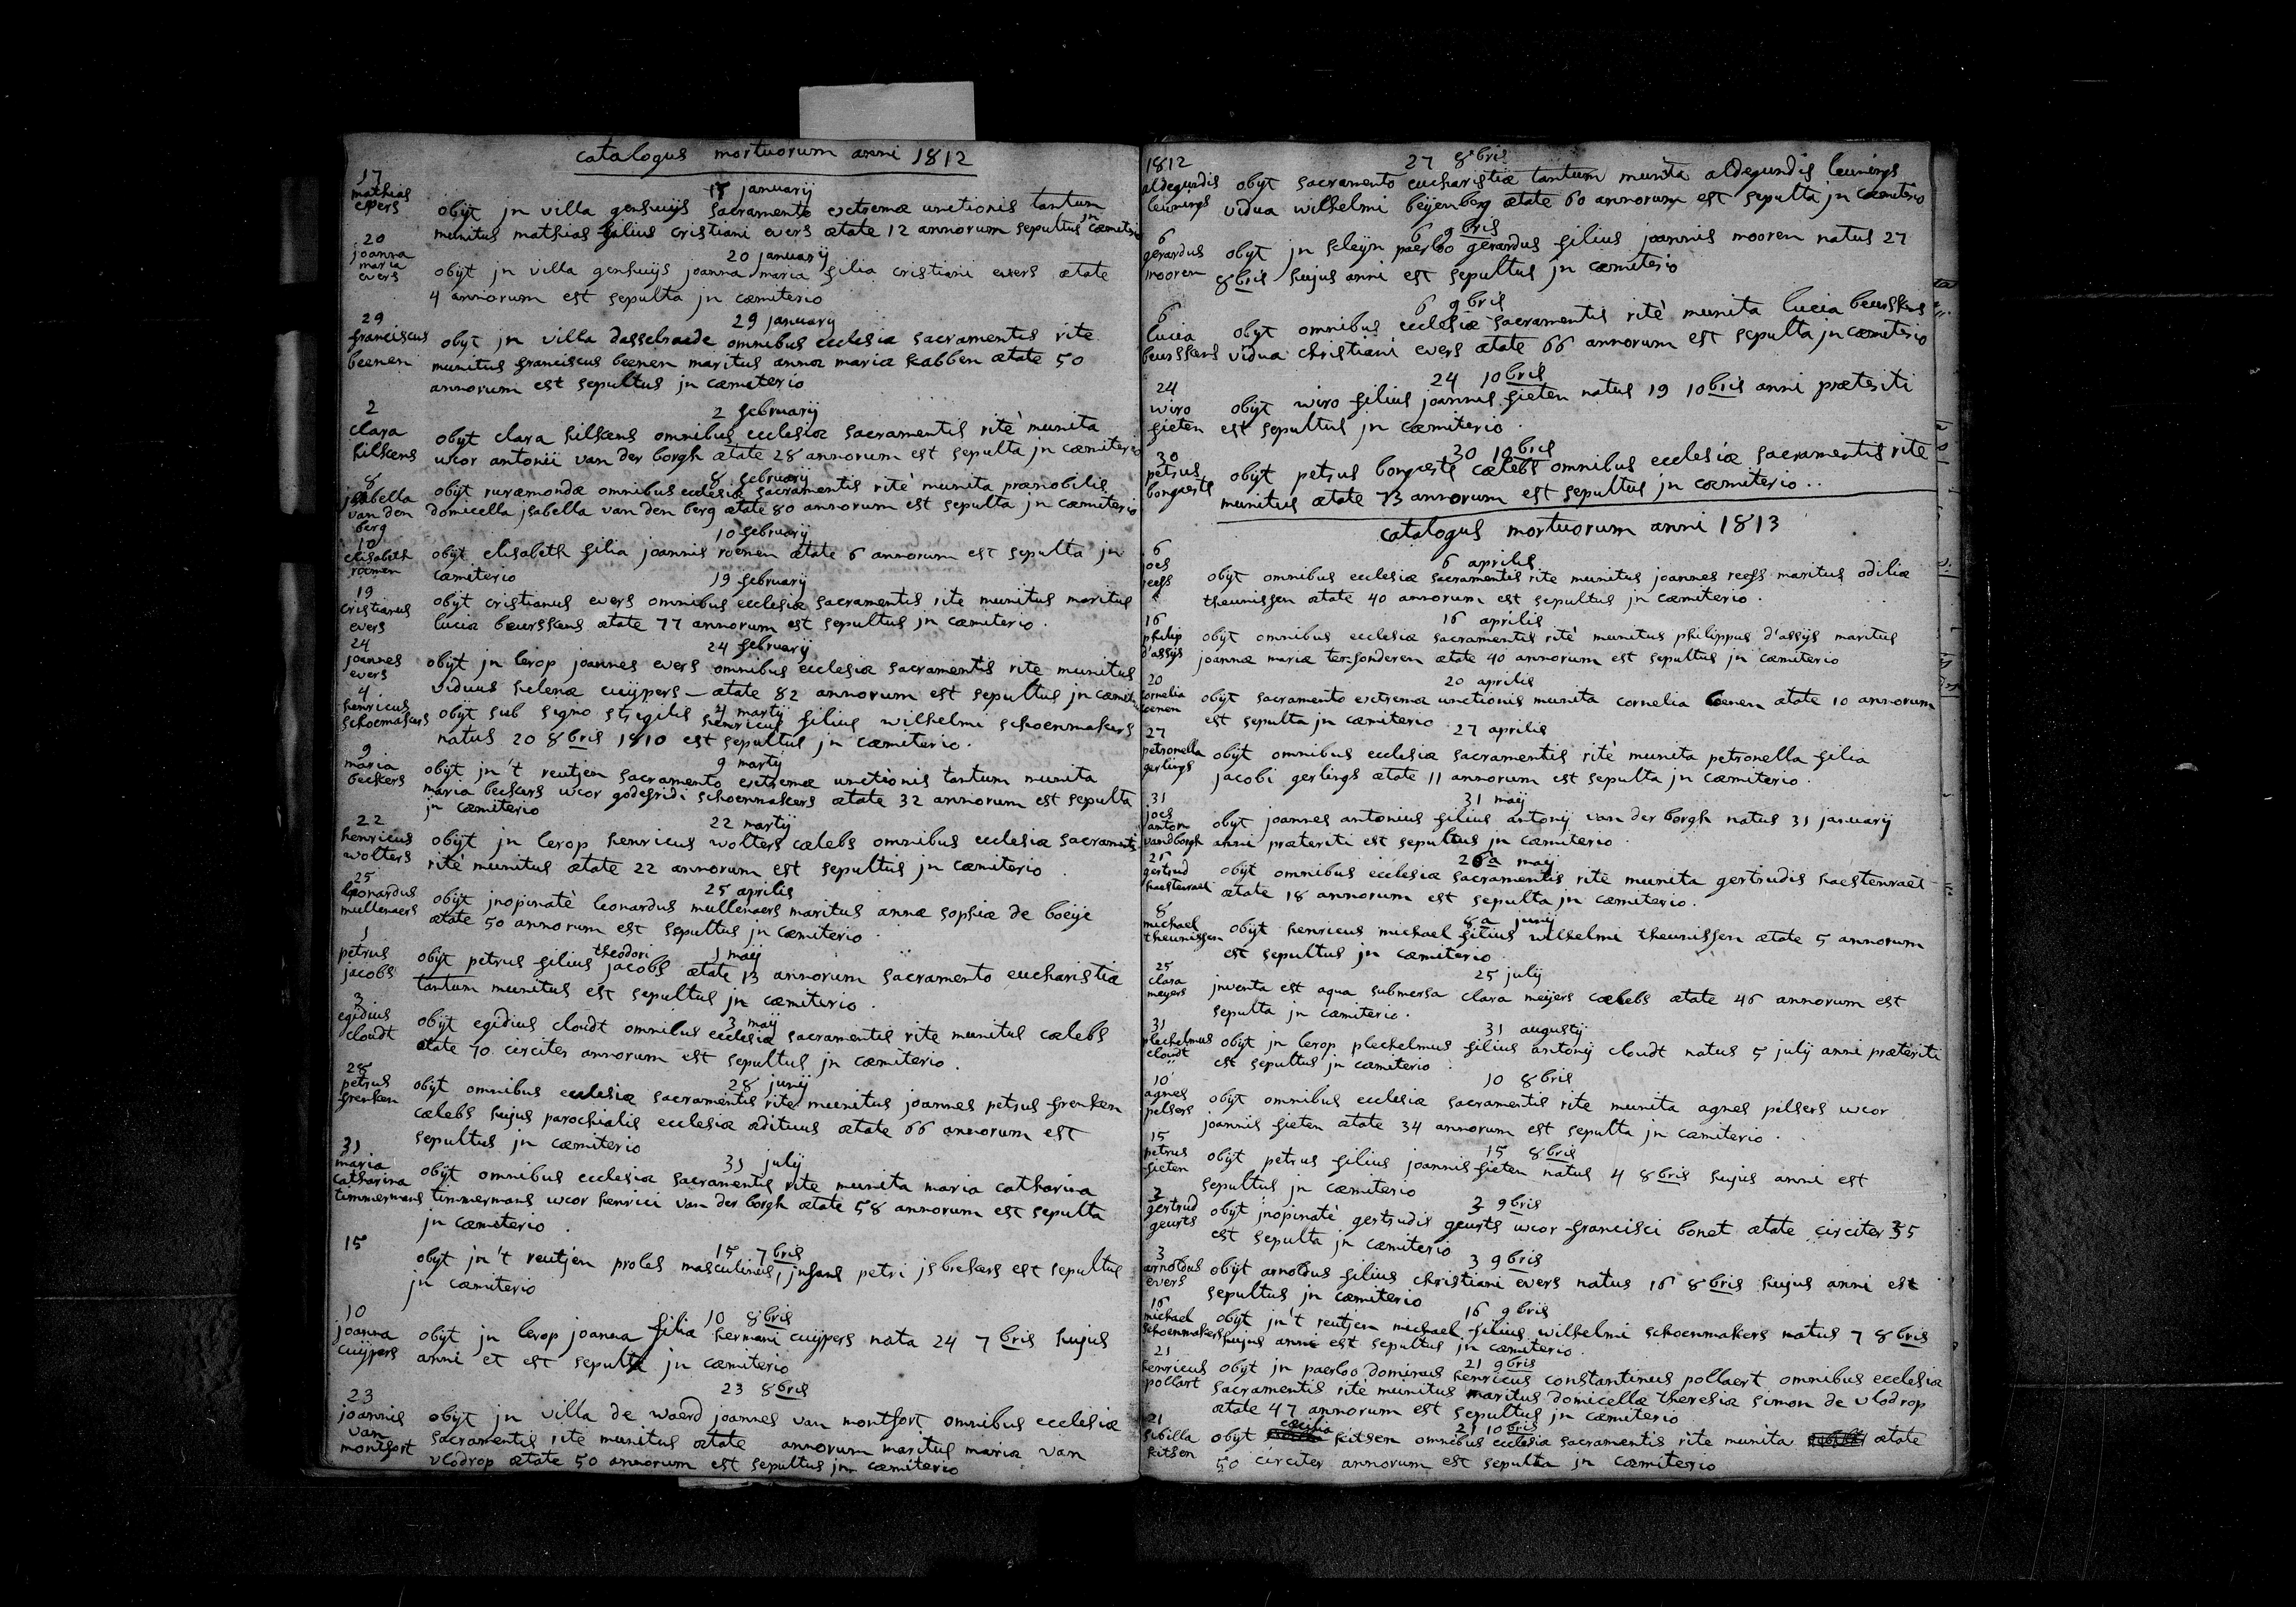 catalogus mortuorum anni 1812
17 januarij
17
mathias
evers
obijt jn villa genhuijs sacramento extremæ unctionis tantum
munitus mathias filius cristiani evers ætate 12 annorum sepultus jn cæmiterio
20 januarij
20
joanna
maria
evers
obijt jn villa genhuijs joanna maria filia cristiani evers ætate
4 annorum est sepulta jn cæmiterio
29 januarij
29
franciscus
beenen
obijt jn villa dasselraede omnibus ecclesiæ sacramentis rite
munitus franciscus beenen maritus annæ mariæ kabben ætate 50
annorum est sepultus jn cæmiterio
2 februarij
2
clara
hilkens
obijt clara hilkens omnibus ecclesiæ sacramentis ritè munita
uxor antonii van der borgh ætate 28 annorum est sepulta jn cæmiterio
8 februarij
8
jsabella
van den
berg
obijt ruræmondæ omnibus ecclesiæ sacramentis ritè munita prænobilis
domicella jsabella van den berg ætate 80 annorum est sepulta jn cæmiterio
10 februarij
10
elisabeth
roemen
obijt elisabeth filia joannis roenen ætate 6 annorum est sepulta jn
cæmiterio
19 februarij
19
cristianus
evers
obijt cristianus evers omnibus ecclesiæ sacramentis rite munitus maritus
luciæ beurskens ætate 77 annorum est sepultus jn cæmiterio.
24 februarij
24
joannes
evers
obijt jn lerop joannes evers omnibus ecclesiæ sacramentis rite munitus
viduus helenæ cuijpers – ætate 82 annorum est sepultus jn cæmiterio
4 martij
4
henricus
schoemakers
obijt sub signo strigilis henricus filius wilhelmi schoenmakers
natus 20 8bris 1810 est sepultus jn cæmiterio.
9 martij
9
maria
beckers
obijt jn't reutjen sacramento extremæ unctionis tantum munita
maria beckers uxor godefridi schoenmakers ætate 32 annorum est sepulta
jn cæmiterio
22 martij
22
henricus
wolters
obijt jn lerop henricus wolters cælebs omnibus ecclesiæ sacramentis
ritè munitus ætate 22 annorum est sepultus jn cæmiterio.
25 aprilis
25
leonardus
mullenaers
obijt jnopinatè leonardus mullenaers maritus annæ sophiæ de boeije
ætate 50 annorum est sepultus jn cæmiterio.
1 maij
1
petrus
jacobs
obijt petrus filius theodori jacobs ætate 13 annorum sacramento eucharistiæ
tantum munitus est sepultus jn cæmiterio.
3 maij
3
egidius
cloudt
obijt egidius cloudt omnibus ecclesiæ sacramentis rite munitus cælebs
ætate 70 circiter annorum est sepultus jn cæmiterio.
28 junij
28
petrus
frenken
obijt omnibus ecclesiæ sacramentis rite munitus joannes petrus frenken
cælebs hujus parochialis ecclesiæ ædituus ætate 66 annorum est
sepultus jn cæmiterio
31 julij
31
maria
catharina
timmermans
obijt omnibus ecclesiæ sacramentis rite munita maria catharina
timmermans uxor henrici van der borgh ætate 58 annorum est sepulta
jn cæmiterio.
15 7bris
15
obijt jn't reutjen proles masculinus, jnfans petri jsbrekers est sepultus
jn cæmiterio
10 8bris
10
joanna
cuijpers
obijt jn lerop joanna filia hermani cuijpers nata 24 7bris hujus
anni et est sepulta jn cæmiterio
23 8bris
23
joannis
van
montfort
obijt jn villa de waerd joannes van montfort omnibus ecclesiæ
sacramentis rite munitus ætate annorum maritus mariæ van
vlodrop ætate 50 annorum est sepultus jn cæmiterio
1812
27 8bris
aldegundis
leunings
obijt sacramento eucharistiæ tantum munita aldegundis leunings
vidua wilhelmi beijenberg ætate 60 annorum est sepulta jn cæmiterio
6 9bris
6
gerardus
mooren
obijt jn kleijn paerloo gerardus filius joannis mooren natus 27
8bris hujus anni est sepultus jn cæmiterio
6 9bris
6
lucia
beurskens
obijt omnibus ecclesiæ sacramentis ritè munita lucia beurskens
vidua christiani evers ætate 66 annorum est sepulta jn cæmiterio
24 10bris
24
wiro
gieten
obijt wiro filius joannis gieten natus 19 10bris anni præteriti
est sepultus jn cæmiterio.
30 10bris
30
petrus
bongaerts
obijt petrus bongaerts cælebs omnibus ecclesiæ sacramentis rite
munitus ætate 73 annorum est sepultus jn cæmiterio..
catalogus mortuorum anni 1813
6 aprilis
6
joes
reefs
obijt omnibus ecclesiæ sacramentis rite munitus joannes reefs maritus odiliæ
theunissen ætate 40 annorum est sepultus jn cæmiterio.
16 aprilis
16
philip
d'assijs
obijt omnibus ecclesiæ sacramentis ritè munitus philippus d'assijs maritus
joannæ mariæ ter-fonderen ætate 40 annorum est sepultus jn cæmiterio
20 aprilis
20
cornelia
coenen
obijt sacramento extremæ unctionis munita cornelia coenen ætate 10 annorum
est sepulta jn cæmiterio
27 aprilis
27
petronella
gerlings
obijt omnibus ecclesiæ sacramentis ritè munita petronella filia
jacobi gerlings ætate 11 annorum est sepulta jn cæmiterio.
31 maij
31
joes
anton
vandborgh
obijt joannes antonius filius antonij van der borgh natus 31 januarij
anni præteriti est sepultus jn cæmiterio.
26a maij
26
gertrud
haestenraet
obijt omnibus ecclesiæ sacramentis rite munita gertrudis haestenraet
ætate 18 annorum est sepulta jn cæmiterio.
8a junij
8
michael
theunissen
obijt henricus michael filius wilhelmi theunissen ætate 5 annorum
est sepultus jn cæmiterio.
25 julij
25
clara
meyers
jnventa est aqua submersa clara meijers cælebs ætate 46 annorum est
sepulta jn cæmiterio.
31 augustij
31
plechelmus
cloudt
obijt jn lerop plechelmus filius antonij cloudt natus 5 julij anni præteriti
est sepultus jn cæmiterio.
10 8bris
10
agnes
pelsers
obijt omnibus ecclesiæ sacramentis rite munita agnes pelsers uxor
joannis gieten ætate 34 annorum est sepulta jn cæmiterio.
15 8bris
15
petrus
gieten
obijt petrus filius joannis gieten natus 4 8bris hujus anni est
sepultus jn cæmiterio
3 9bris
gertrud
geurts
obijt jnopinatè gertrudis geurts uxor francisci bonet ætate circiter 35
est sepulta jn cæmiterio
3 9bris
3
arnoldus
evers
obijt arnoldus filius christiani evers natus 16 8bris hujus anni est
sepultus jn cæmiterio
16 9bris
16
michael
schoenmakers
obijt jn't reutjen michael filius wilhelmi schoenmakers natus 7 8bris
hujus anni est sepultus jn cæmiterio.
21 9bris
21
henricus
pollart
obijt jn paerloo dominus henricus constantinus pollaert omnibus ecclesiæ
sacramentis ritè munitus maritus domicellæ theresiæ simon de vlodrop
ætate 47 annorum est sepultus jn cæmiterio
21 10bris
21
sibilla
kitsen
obijt cæcilia kitsen omnibus ecclesiæ sacramentis rite munita ætate
50 circiter annorum est sepulta jn cæmiterio